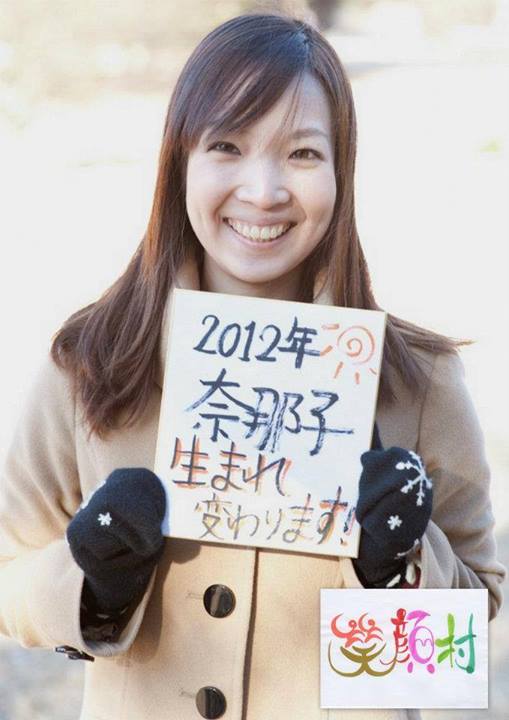 2012年
奈那子
生まれ
変わります!
笑顔村